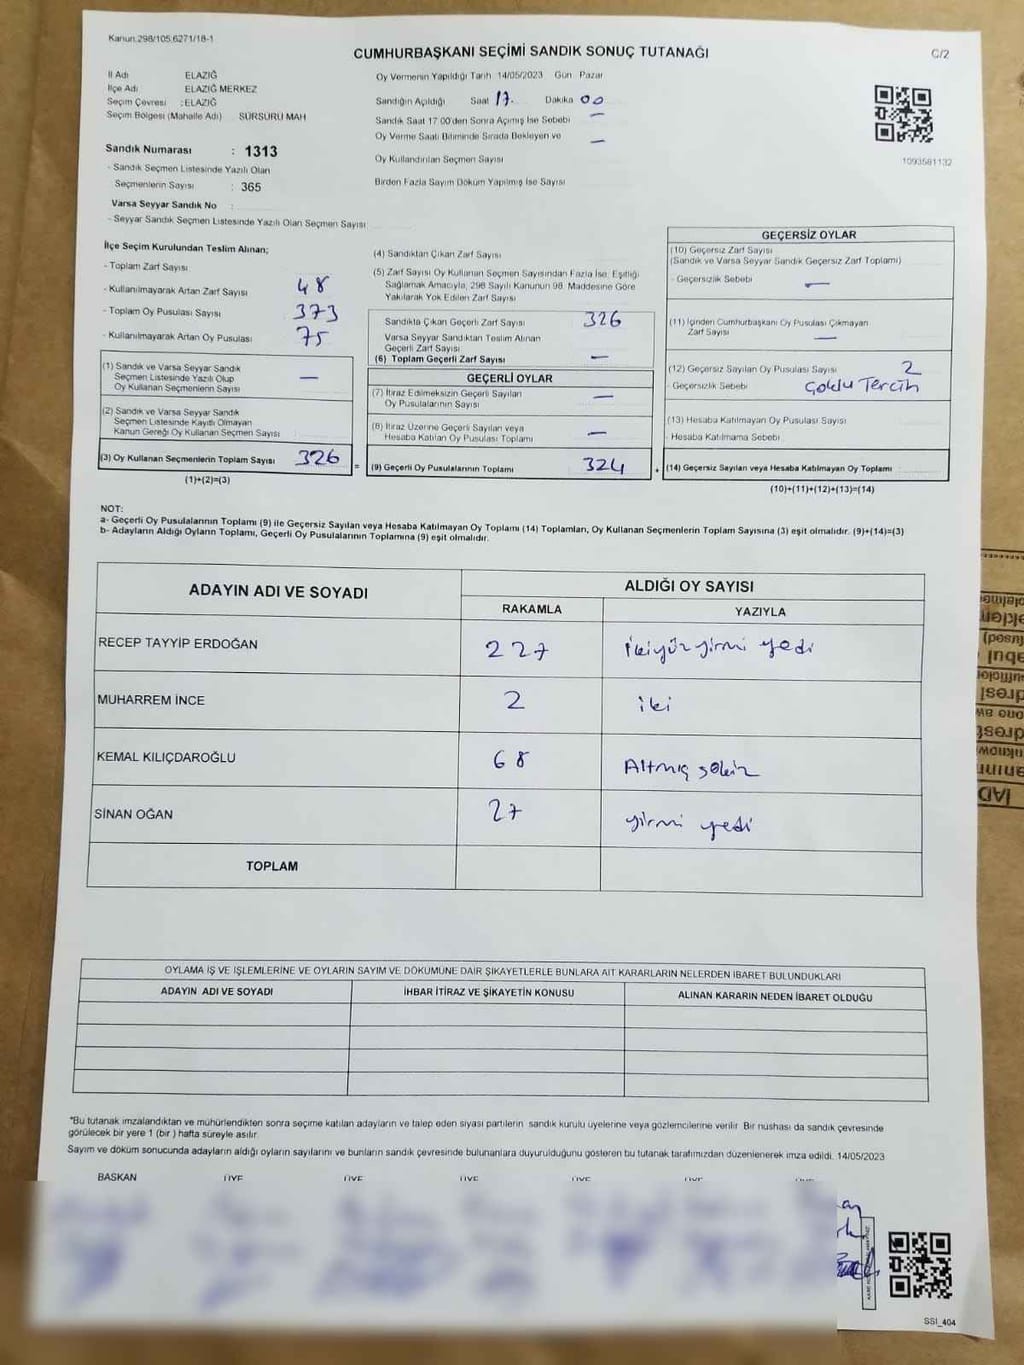 Kanun.298/105.6271/18-1
CUMHURBAŞKANI SEÇİMİ SANDIK SONUÇ TUTANAĞI
C/2
İl Adı ELAZIĞ
İlçe Adı ELAZIĞ MERKEZ
Seçim Çevresi : ELAZIĞ
Seçim Bölgesi (Mahalle Adı) SÜRSÜRÜ MAH
Sandık Numarası : 1313
- Sandık Seçmen Listesinde Yazılı Olan
Seçmenlerin Sayısı : 365
Varsa Seyyar Sandık No :
- Seyyar Sandık Seçmen Listesinde Yazılı Olan Seçmen Sayısı
Oy Vermenin Yapıldığı Tarih 14/05/2023 Gün Pazar
Sandığın Açıldığı Saat 17. Dakika 00
Sandık Saat 17.00'den Sonra Açımış İse Sebebi —
Oy Verme Saati Bitiminde Sırada Bekleyen ve —
Oy Kullandırılan Seçmen Sayısı
Birden Fazla Sayım Döküm Yapılmış İse Sayısı
1093581132
İlçe Seçim Kurulundan Teslim Alınan;
- Toplam Zarf Sayısı
- Kullanılmayarak Artan Zarf Sayısı 48
- Toplam Oy Pusulası Sayısı 373
- Kullanılmayarak Artan Oy Pusulası 75
(1) Sandık ve Varsa Seyyar Sandık
Seçmen Listesinde Yazılı Olup
Oy Kullanan Seçmenlerin Sayısı —
(2) Sandık ve Varsa Seyyar Sandık
Seçmen Listesinde Kayıtlı Olmayan
Kanun Gereği Oy Kullanan Seçmen Sayısı
(3) Oy Kullanan Seçmenlerin Toplam Sayısı 326
(1)+(2)=(3)
(4) Sandıktan Çıkan Zarf Sayısı
(5) Zarf Sayısı Oy Kullanan Seçmen Sayısından Fazla İse, Eşitliği
Sağlamak Amacıyla, 298 Sayılı Kanunun 98. Maddesine Göre
Yakılarak Yok Edilen Zarf Sayısı
Sandıkta Çıkan Geçerli Zarf Sayısı 326
Varsa Seyyar Sandıktan Teslim Alınan
Geçerli Zarf Sayısı
(6) Toplam Geçerli Zarf Sayısı —
GEÇERLİ OYLAR
(7) İtiraz Edilmeksizin Geçerli Sayılan
Oy Pusulalarının Sayısı —
(8) İtiraz Üzerine Geçerli Sayılan veya
Hesaba Katılan Oy Pusulası Toplamı —
= (9) Geçerli Oy Pusulalarının Toplamı 324 +
GEÇERSİZ OYLAR
(10) Geçersiz Zarf Sayısı
(Sandık ve Varsa Seyyar Sandık Geçersiz Zarf Toplamı)
- Geçersizlik Sebebi —
(11) İçinden Cumhurbaşkanı Oy Pusulası Çıkmayan
Zarf Sayısı —
(12) Geçersiz Sayılan Oy Pusulası Sayısı 2
- Geçersizlik Sebebi Çoklu Tercih
(13) Hesaba Katılmayan Oy Pusulası Sayısı
- Hesaba Katılmama Sebebi
(14) Geçersiz Sayılan veya Hesaba Katılmayan Oy Toplamı
(10)+(11)+(12)+(13)=(14)
NOT:
a- Geçerli Oy Pusulalarının Toplamı (9) ile Geçersiz Sayılan veya Hesaba Katılmayan Oy Toplamı (14) Toplamları, Oy Kullanan Seçmenlerin Toplam Sayısına (3) eşit olmalıdır. (9)+(14)=(3)
b- Adayların Aldığı Oyların Toplamı, Geçerli Oy Pusulalarının Toplamına (9) eşit olmalıdır.
ADAYIN ADI VE SOYADI
ALDIĞI OY SAYISI
RAKAMLA YAZIYLA
RECEP TAYYİP ERDOĞAN 227 ikiyüzyirmi yedi
MUHARREM İNCE 2 iki
KEMAL KILIÇDAROĞLU 68 Altmış sekiz
SİNAN OĞAN 27 yirmi yedi
TOPLAM
OYLAMA İŞ VE İŞLEMLERİNE VE OYLARIN SAYIM VE DÖKÜMÜNE DAİR ŞİKAYETLERLE BUNLARA AİT KARARLARIN NELERDEN İBARET BULUNDUKLARI
ADAYIN ADI VE SOYADI İHBAR İTİRAZ VE ŞİKAYETİN KONUSU ALINAN KARARIN NEDEN İBARET OLDUĞU
*Bu tutanak imzalandıktan ve mühürlendikten sonra seçime katılan adayların ve talep eden siyasi partilerin sandık kurulu üyelerine veya gözlemcilerine verilir. Bir nüshası da sandık çevresinde
görülecek bir yere 1 (bir) hafta süreyle asılır.
Sayım ve döküm sonucunda adayların aldığı oyların sayılarını ve bunların sandık çevresinde bulunanlara duyurulduğunu gösteren bu tutanak tarafımızdan düzenlenerek imza edildi. 14/05/2023
BAŞKAN ÜYE ÜYE ÜYE ÜYE ÜYE
SSI_404